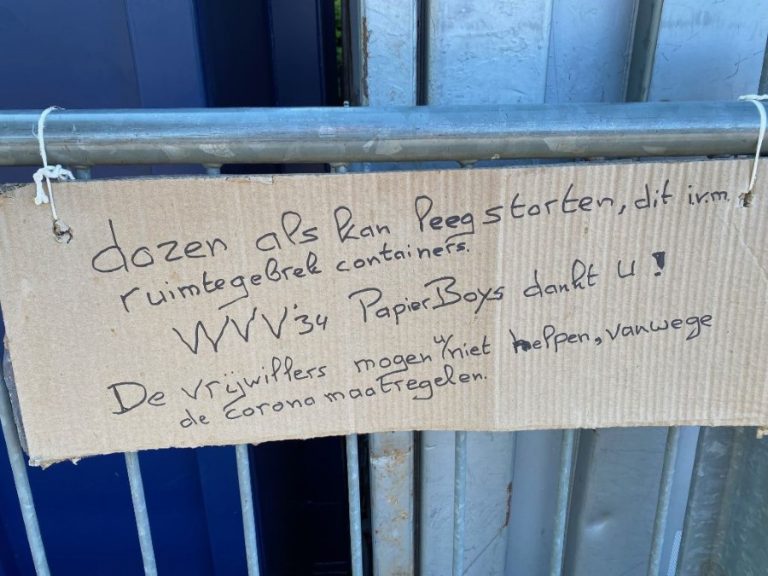 dozen als kan leegstorten, dit i.v.m.
ruimtegebrek containers.
WVV'34 PapierBoys dankt u!
De vrijwillers mogen u/niet helpen, vanwege
de corona maatregelen.